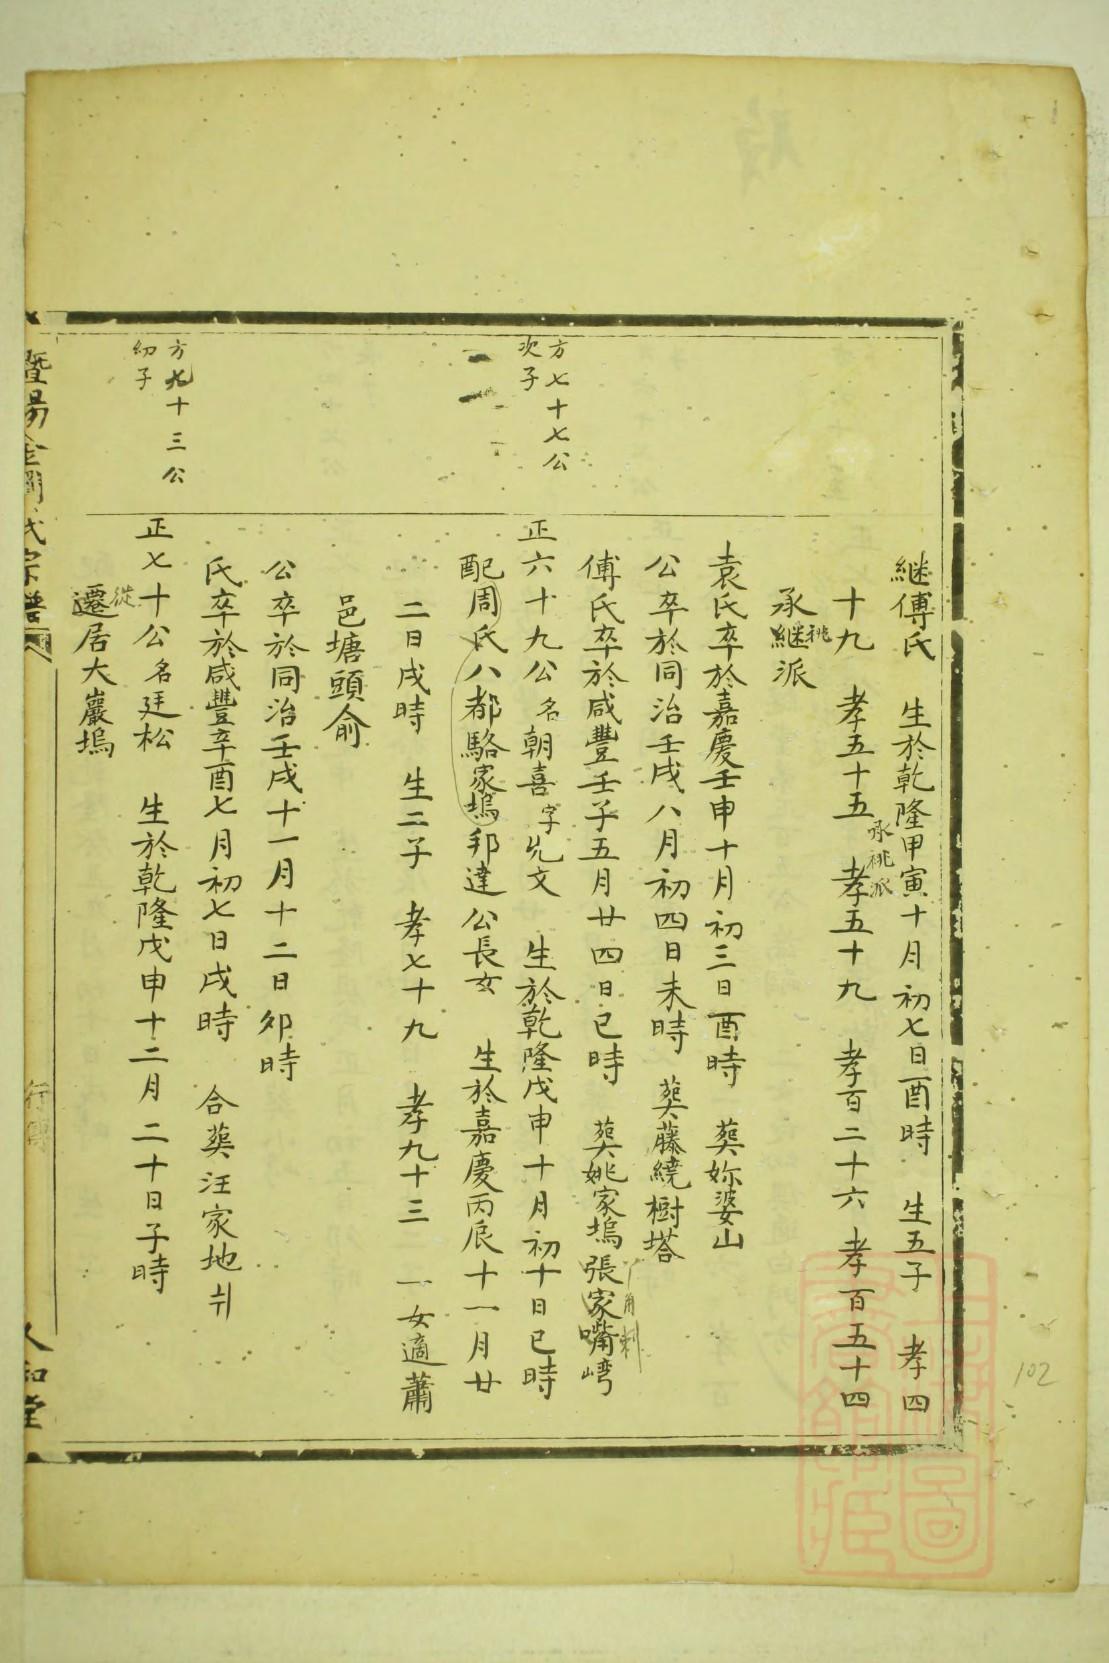 继傅氏　生於乾隆甲寅十月初七日酉時　生五子　孝四
十九　孝五十五　孝五十九　孝百二十六　孝百五十四
承祧派
承継派
祧
袁氏卒於嘉慶壬申十月初三日酉時　葬妳婆山
公卒於同治壬戌八月初四日未時　葬藤繞樹塔
傅氏卒於咸豐壬子五月廿四日巳時　葬姚家塢張家嘴崣
方七十七公
次子
正六十九公名朝喜字先文　生於乾隆戊申十月初十日巳時
配周氏八都駱家塢邦達公長女　生於嘉慶丙辰十一月廿
二日戌時　生二子　孝七十九　孝九十三　一女適蕭
邑塘頭俞
公卒於同治壬戌十一月十二日夘時
氏卒於咸豐辛酉七月初七日戌時　合葬汪家地
方九十三公
幼子
正七十公名廷松　生於乾隆戊申十二月二十日子時
從
遷居大巖塢
暨陽金澗氏宗譜
行傳
人和堂
102